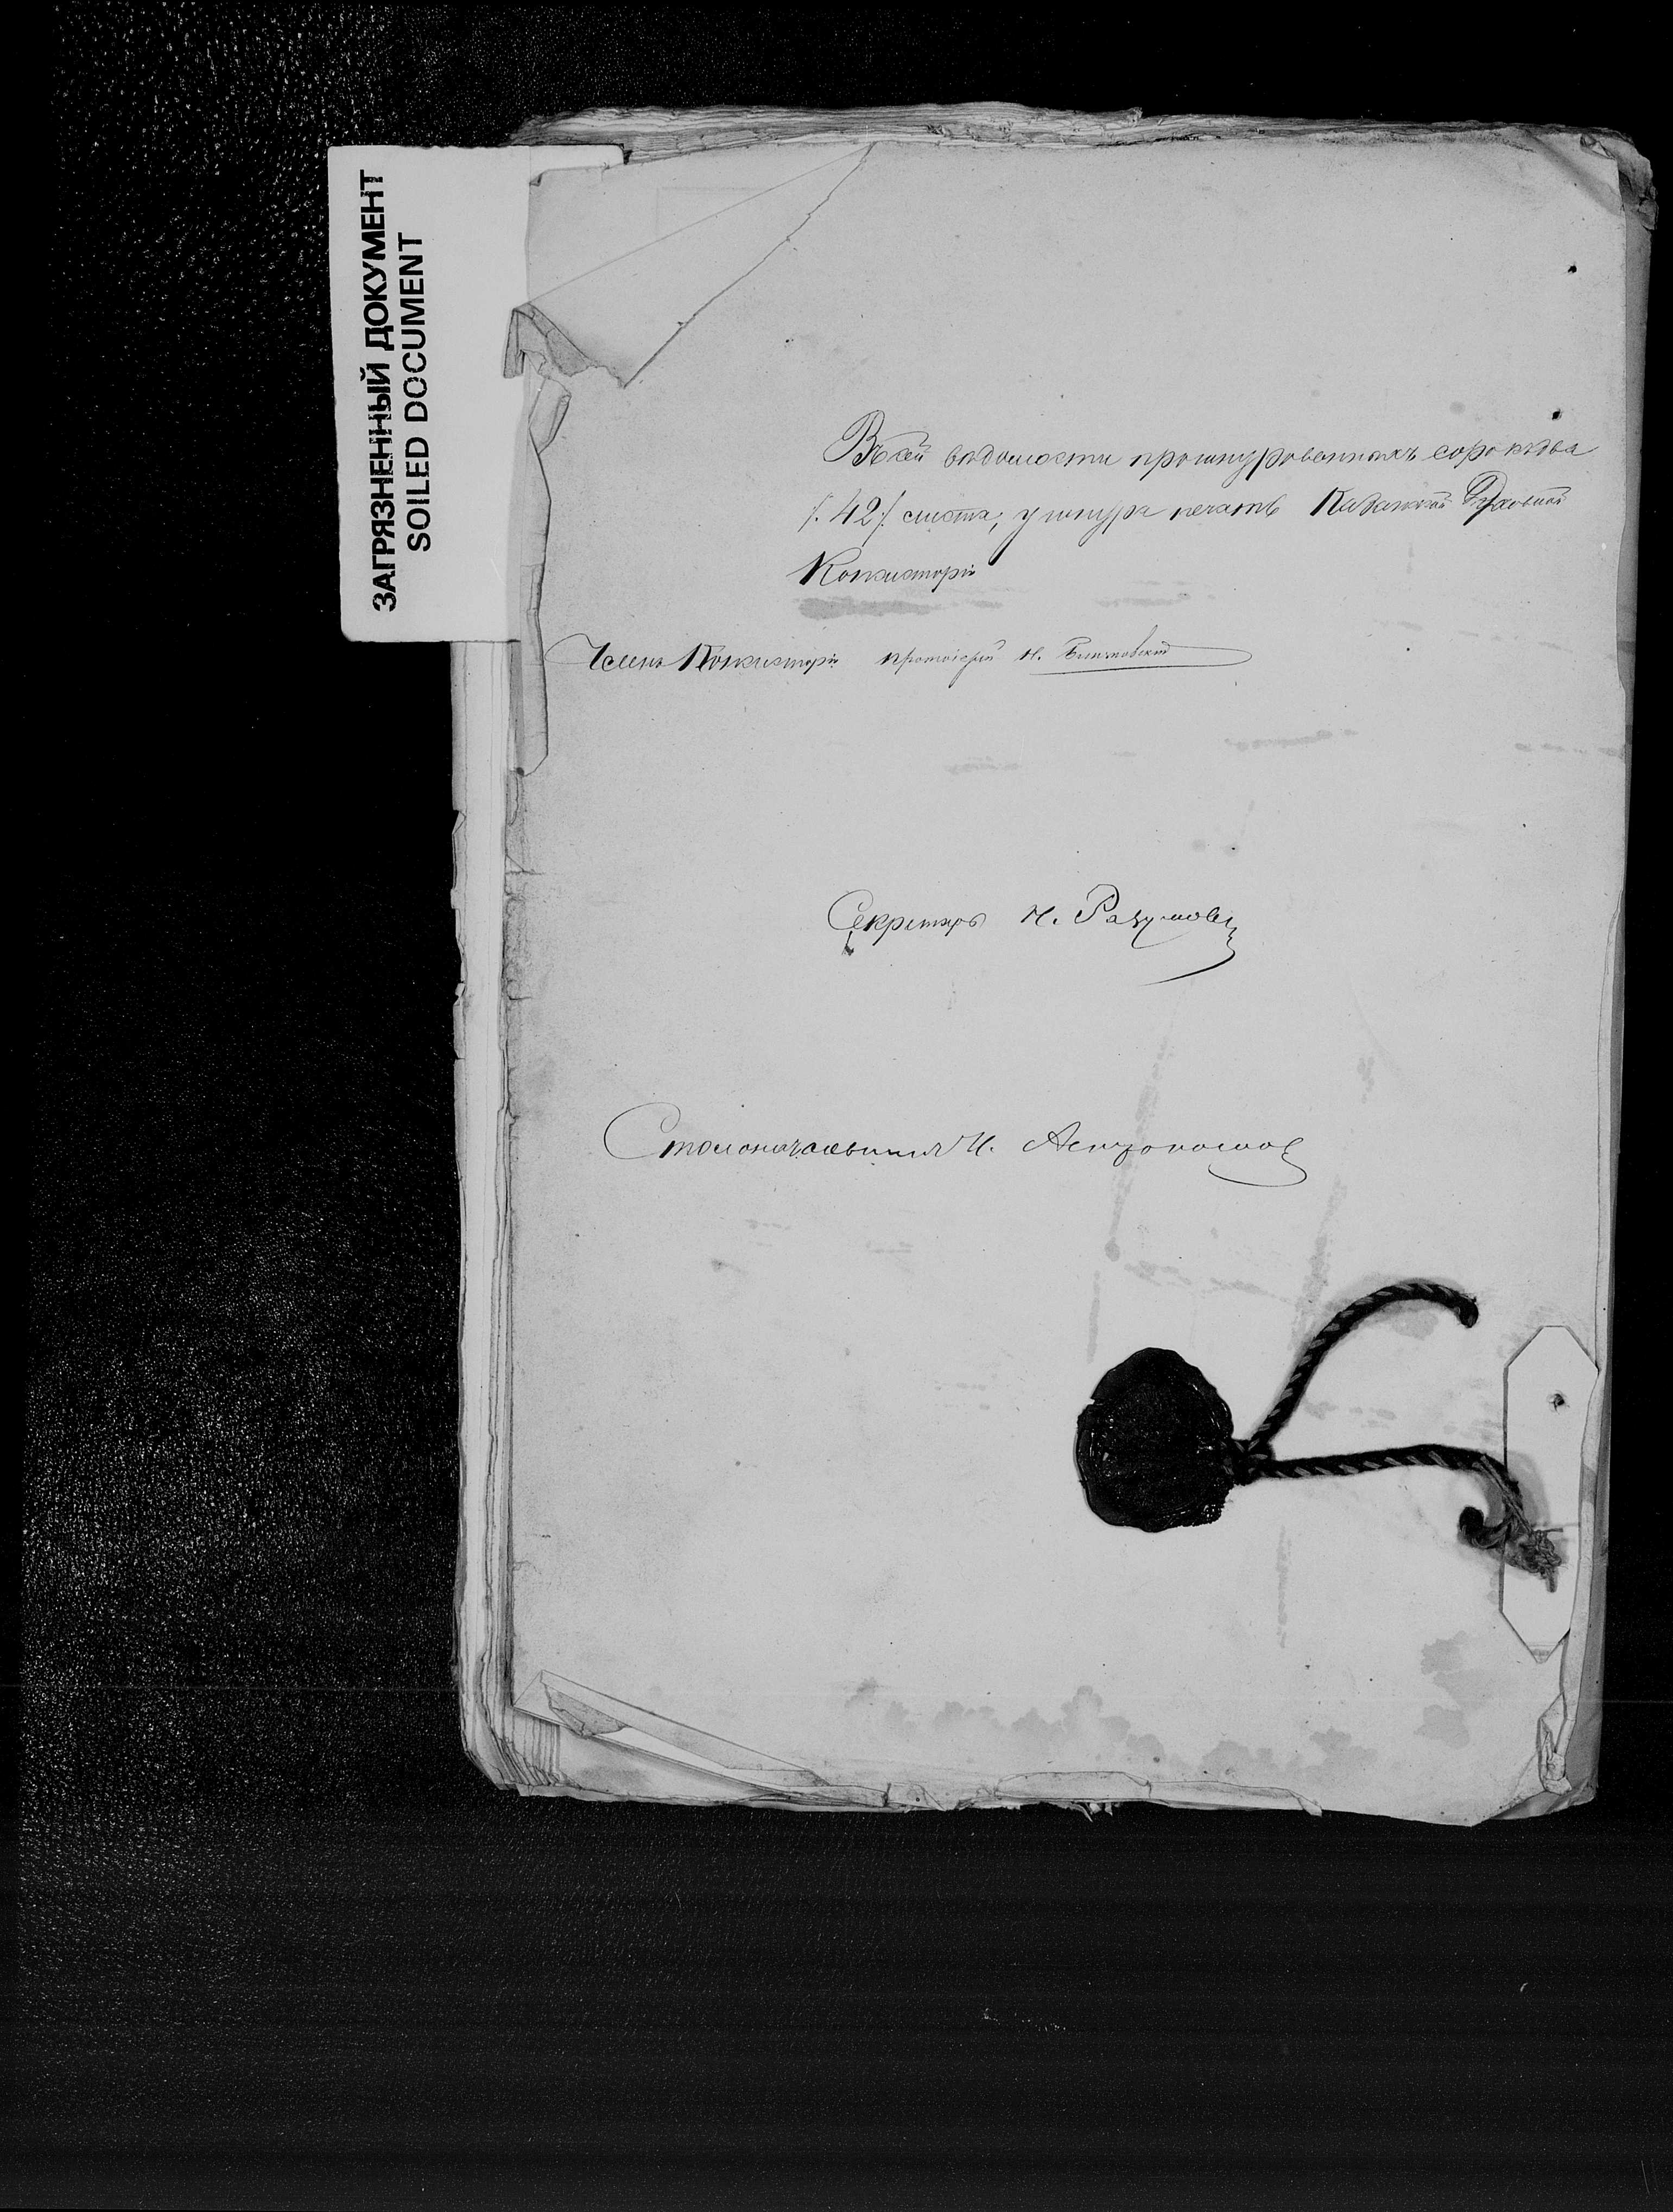 ЗАГРЯЗНЕННЫЙ ДОКУМЕНТ
SOILED DOCUMENT
Въ сей вѣдомости прошнурованныхъ сорокъ два
/. 42 /. листа; у шнура печать Духовной
Консисторіи
Членъ Консисторіи протоіерей Н.
Секретарь Н. Разумов
Столоначальникъ И.